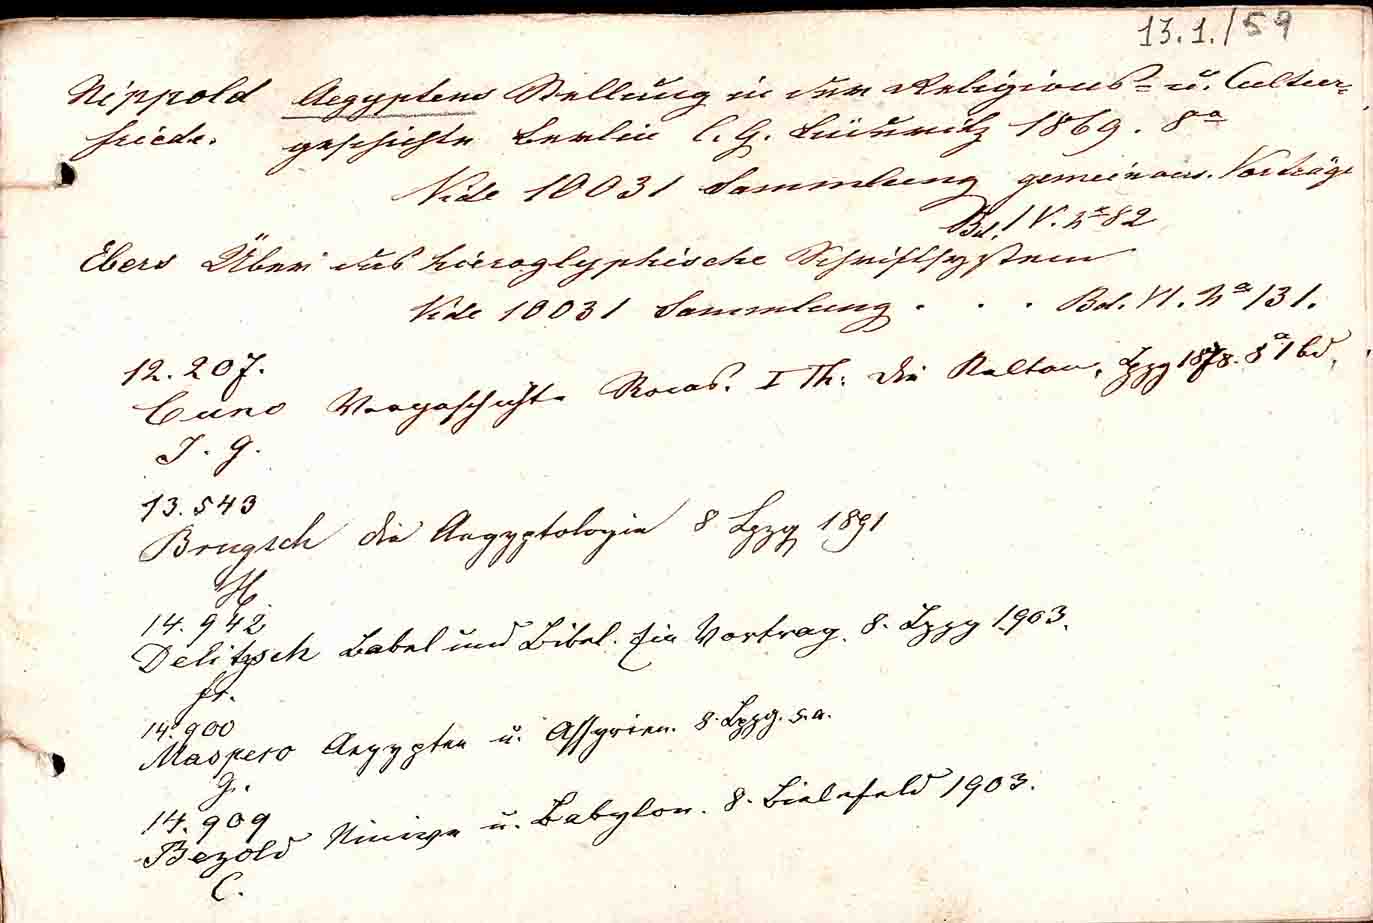 13.1./59
Nippold Aegyptens Stellung in der Religions- u. Cultur-
Friedr. geschichte Berlin C. G. Lüderitz 1869. 8°
Vide 10031 Sammlung gemeinverst. Vorträge
Bd. IV. No 82
Ebers Über das hieroglyphische Schriftsystem
Vide 10031 Sammlung . . . Bd. VI. No 131.
12.207.
Cuno Vorgeschichte Roms. I Th: die Kelten, Lpzg 1878. 8° 1 bd.
J. G.
13.543
Brugsch die Aegyptologie 8 Lpzg 1891
H
14.942
Delitzsch Babel und Bibel. Ein Vortrag. 8. Lpzg 1903.
Fr.
14.900
Maspero Aegypten u. Assyrien. 8. Lpzg. s.a.
G.
14.909
Bezold Ninive u. Babylon. 8. Bielefeld 1903.
C.